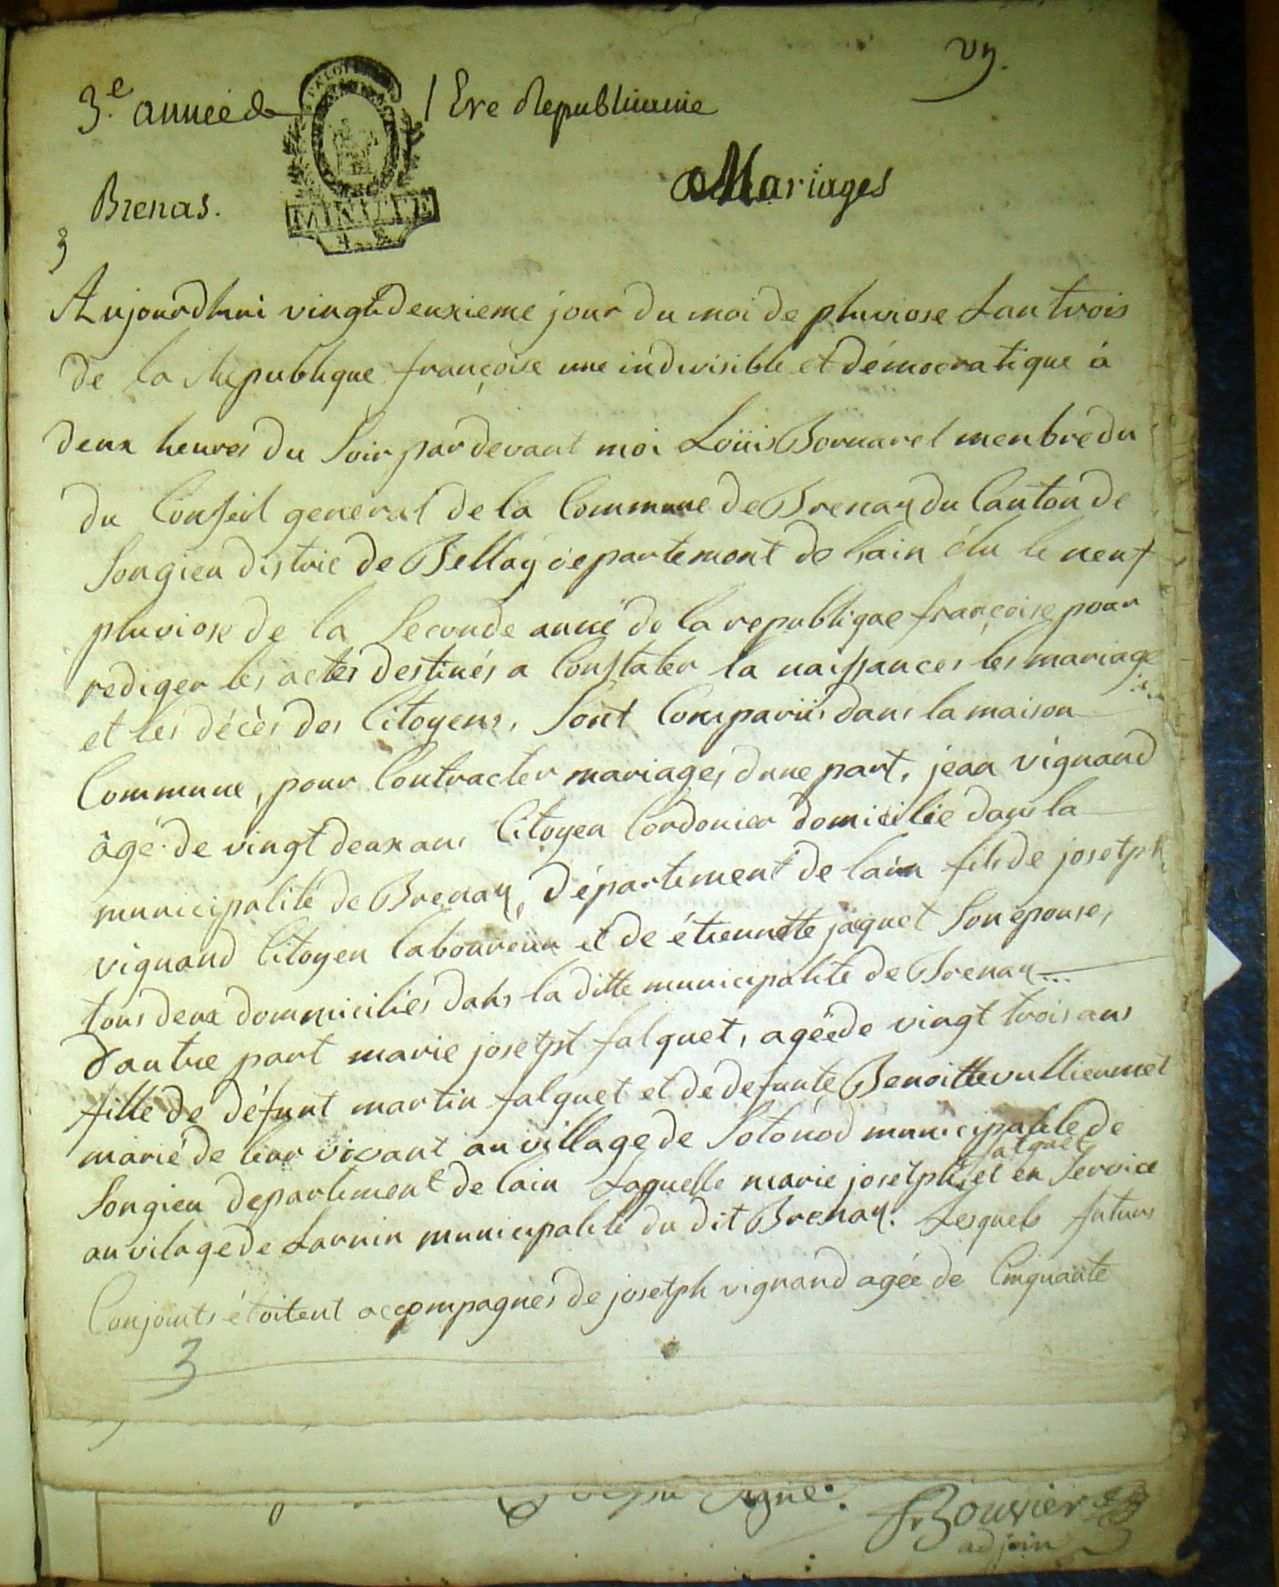 3.e année de l Ere Republicaine
Brenas.
Mariages
MINUTE
3
Aujourdhui vingtdeuxieme jour du moi de pluviose Lan trois
de la Republique françoise une indivisible et démocratique à
deux heures du Soir pardevant moi Loüis Bornarel menbre du
du Conseil general de la Commune de Brenaz du Canton de
Songieu distric de Bellaÿ departement de lain élu le neuf
pluviose de la Seconde anneé de la republique françoise pour
rediger les actes destinés a Constater la naissances les mariage
et les décès des Citoyens, Sont Comparüs dans la maison
Commune, pour Contracter mariages dune part, jean vignand
âgé de vingt deux ans Citoyen Cordonier domicilié dans la
municipalité de Brenaz, Département de lain fils de josetph
vignand Citoyen laboureur et de étiennette jaquet Son épouse,
tous deux dommiciliés dans la ditte municipalité de Brenaz...
dautre part marie josetpt falquet, ageéde vingt trois ans
fille de défunt martin falquet et de defunte Benoitte vullienmet
marié de leur vivant au village de Sotonod municipalité de
falquet
Songieu departement de lain Laquelle marie josetpht et en Service
au vilage de Larnin municipalité du dit Brenaz. Lesquels futurs
Conjoints étoitent accompagnés de josetph vignand agée de Cinquante
3
Signé.
Bouvier
adjoin